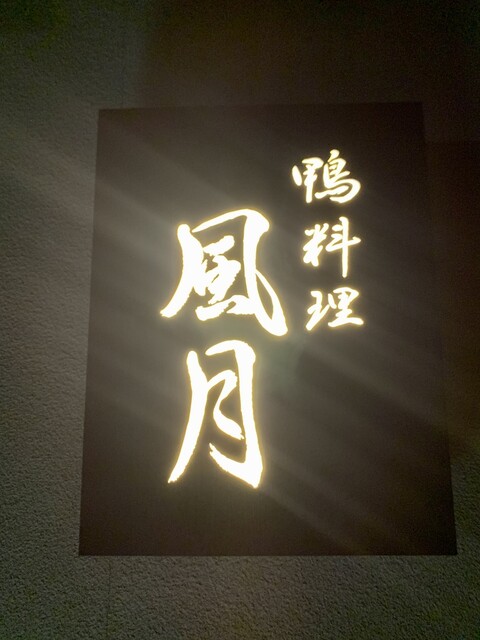 鴨料理
風月